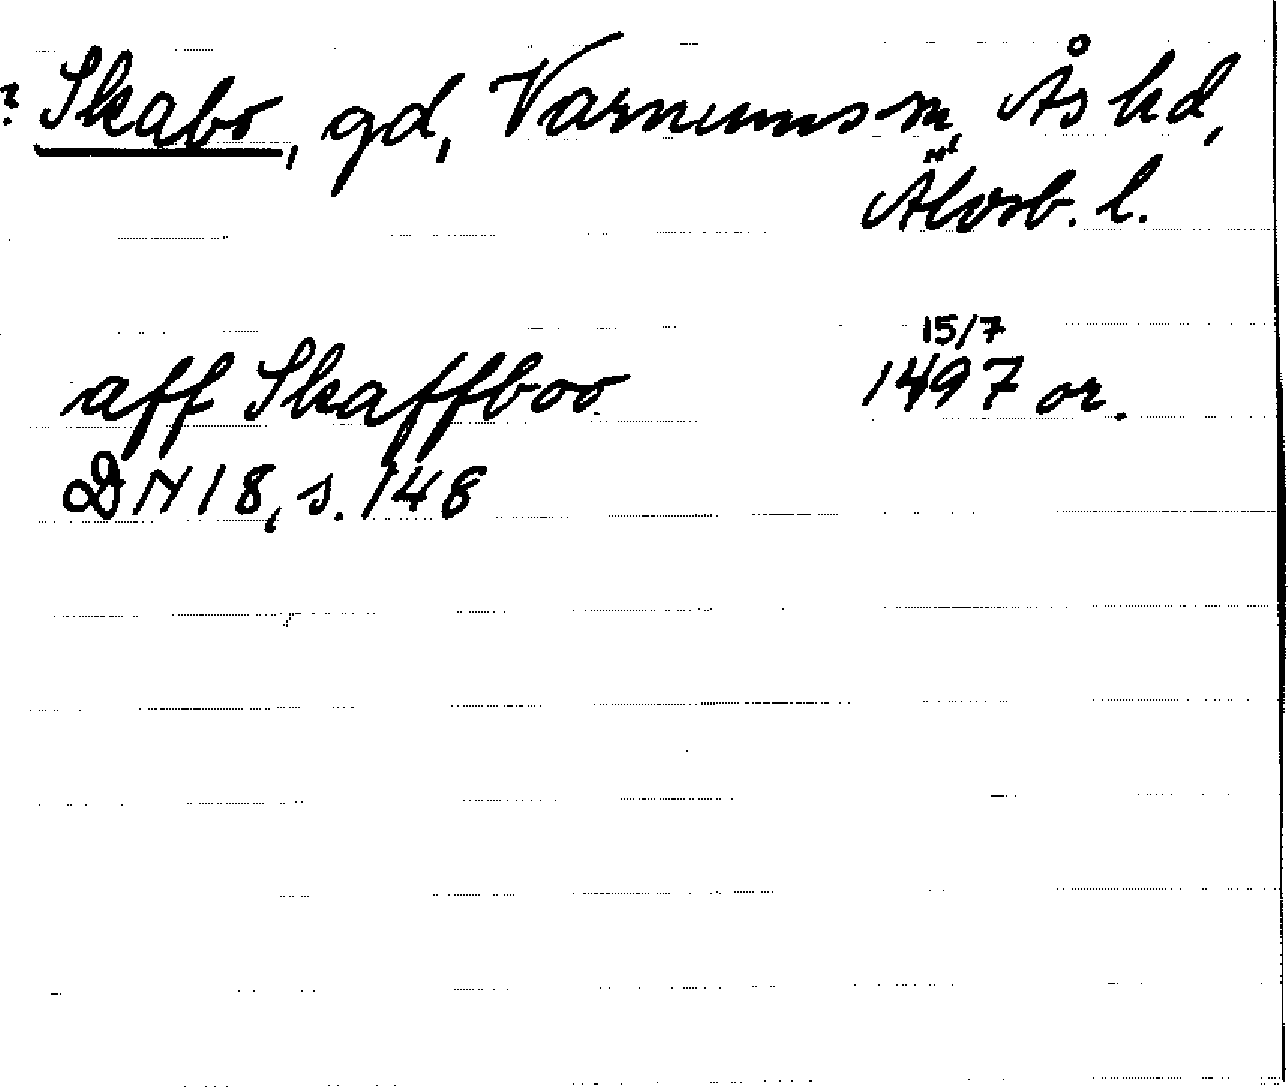 ? Skabo, gd, Varnums sn, Ås hd,
Älvsb. l.
15/7
aff Skaffboo 1497 or.
DN 18, s. 148